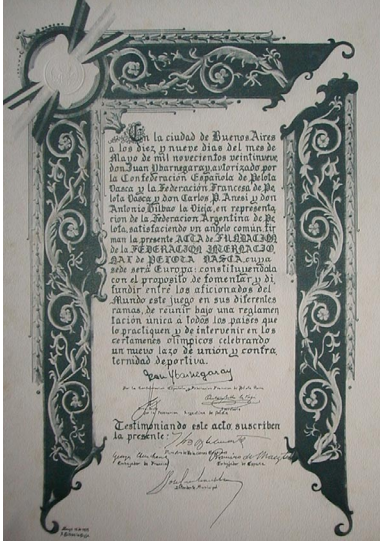 En la ciudad de Buenos Aires
a los diez y nueve días del mes de
Mayo de mil novecientos veintinueve,
don Juan Ybarnegaray, autorizado por
la Confederación Española de Pelota
Vasca y la Federación Francesa de Pe
lota Vasca y don Carlos P. Anesi y don
Antonio Bilbao la Vieja, en representa
cion de la Federación Argentina de Pe
lota, satisfaciendo un anhelo común, fir
man la presente ACTA de FUNDACION
de la FEDERACION INTERNACIO
NAL DE PELOTA VASCA, cuya
sede será Europa: constituyéndola
con el propósito de fomentar y di
fundir entre los aficionados del
Mundo este juego en sus diferentes
ramas, de reunir bajo una reglamen
tación única a todos los países que
lo practiquen y de intervenir en los
certámenes olímpicos celebrando
un nuevo lazo de unión y confra
ternidad deportiva.
Jean Ybarnegaray
Testimoniando este acto, suscriben
la presente:
Ramiro de Maeztu
Embajador de Francia
Embajador de España